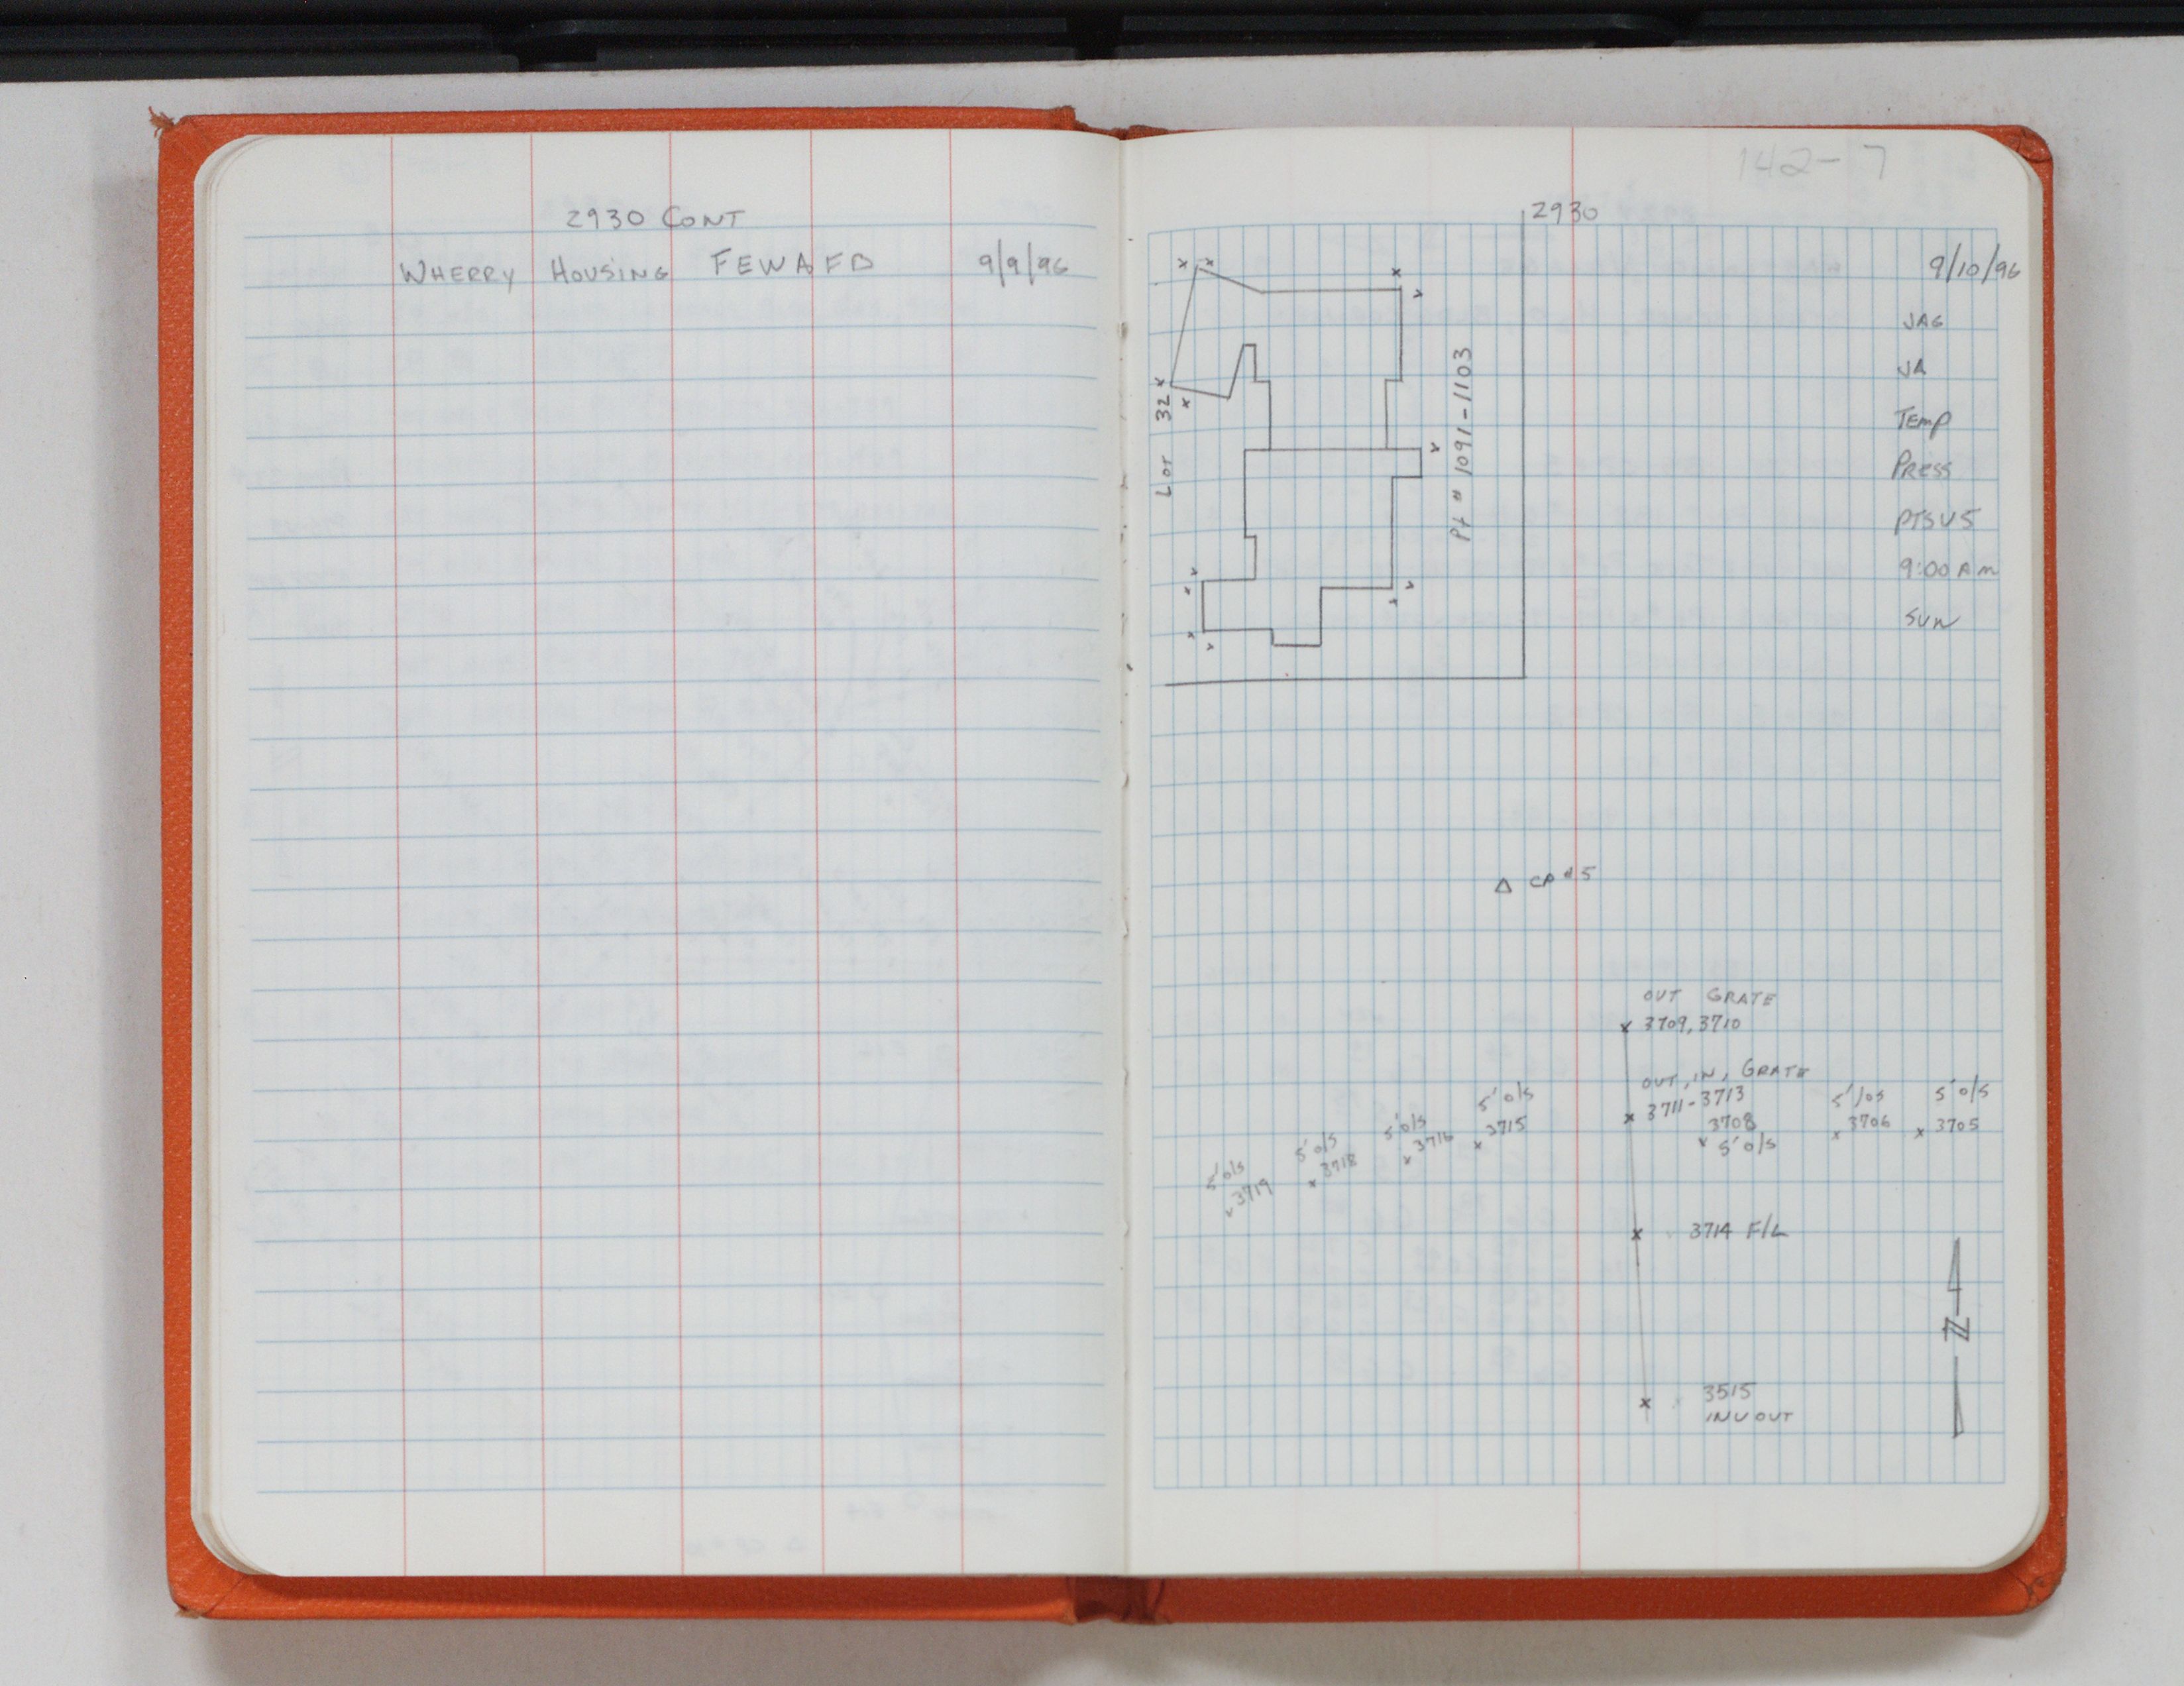 2930 CONT
WHERRY HOUSING FEWAFB 9/9/96
142-7
2930
9/10/96
JAG
JA
TEMP
PRESS
PTSV5
9:00 AM
SUN
LOT 32
Pt # 1091-1103
Δ CP#5
OUT GRATE
3709, 3710
OUT, IN, GRATE
3711-3713
3708
5' o/s
5' /os
3706
5' o/s
3705
5' o/s
3715
5' o/s
3716
5' o/s
3718
5' o/s
3719
3714 F/L
N
3515
INV OUT